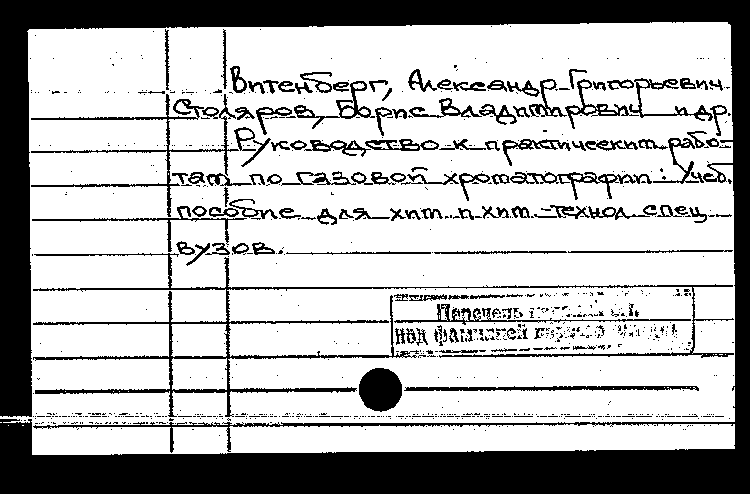 Витенберг, Александр Григорьевич
Столяров, Борис Владимирович и др.
Руководство к практическим рабо-
там по газовой хроматографии: Учеб.
пособие для хим. и хим.-технол. спец.
вузов.
Перечень
под фамилией